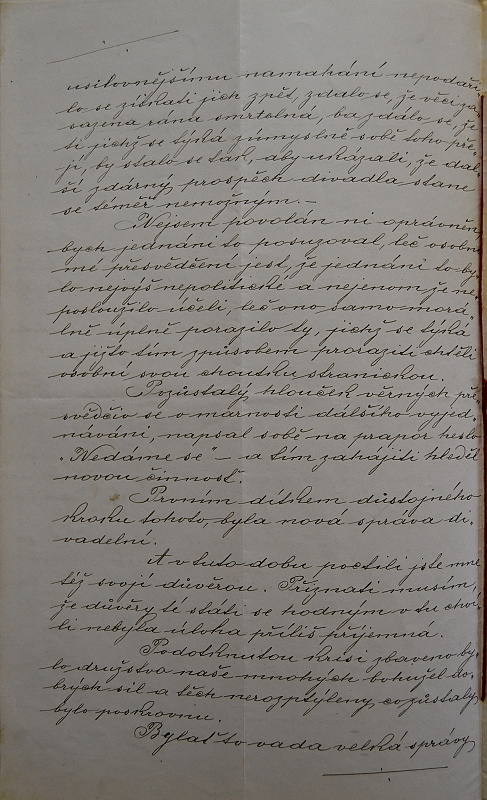 usilovnějšímu namahání nepodaři-
lo se získati jich zpět, zdalo se, že věci za-
sazena rána smrtelná, ba zdálo se, že
ti jichž se týká zúmyslně sobě toho pře-
jí, by stalo se tak, aby ukazali, že dal-
ší zdárný prospěch divadla stane
se téměř nemožným. —
Nejsem povolán ni oprávněn
bych jednání to posuzoval, leč osobní
mé přesvědčení jest, že jednání to by-
lo nejvýš nepolitické a nejenom že ne-
posloužilo účeli, leč ono samo morá-
lně úplně porazilo ty, jichž se týká
a jižto tím způsobem proraziti chtěli
osobní svou choutku stranickou.
Pozůstalý hlouček věrných pře-
svědčiv se o marnosti dálšího vyjed-
návání, napsal sobě na prapor heslo
„Nedáme se" — a tím zahájiti hleděl
novou činnosť.
Prvním dítkem důstojného
kroku tohoto, byla nová správa di-
vadelní.
A v tuto dobu poctili jste mne
též svojí důvěrou. Přiznati musím,
že důvěry té státi se hodným v tu chví-
li nebyla úloha příliš příjemná.
Podotknutou krisi zbaveno by-
lo družstvo naše mnohých bohužel do-
brých sil a těch nerozptýleny cozůstaly
bylo poskrovnu.
Bylať to vada velká správy